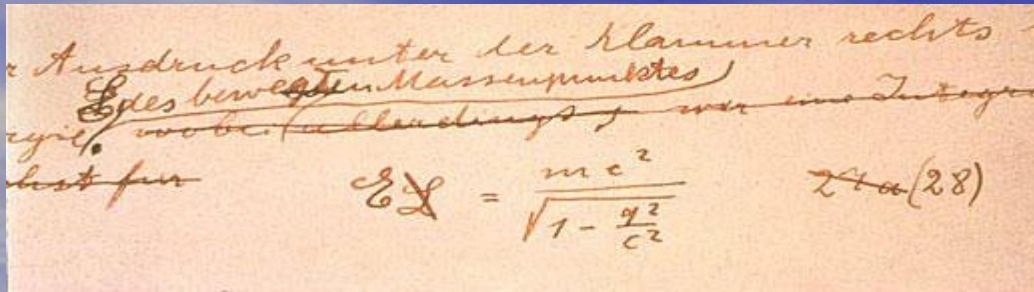 r Ausdruck unter der Klammer rechts
E des bewegten Massenpunktes
rgie, wobei (allerdings, wer eine Integr
chst fur
E L = mc² / √(1 - q²/c²) 24a (28)